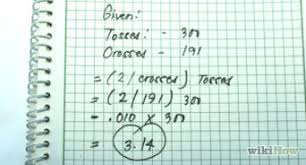 Given:
Tosses: - 3n
Crosses - 191
= (2/crosses) Tosses
= (2/191) 3n
- .010 x 3n
= 3.14
wikiHow